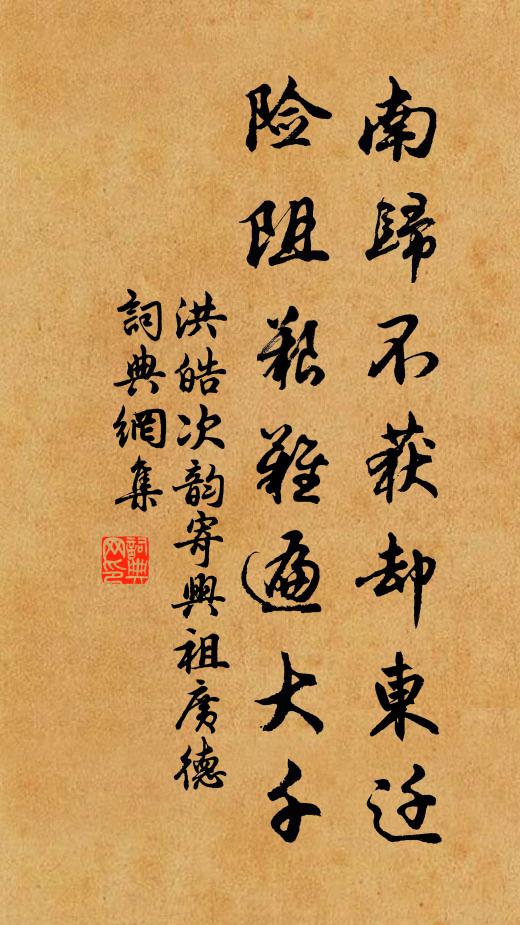 南歸不获却東迁
险阻艱難遍大千
洪皓次韵寄興祖廣德
詞典網集
詞典网印